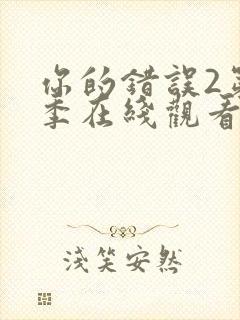 你的錯誤2第
季在綫觀看
淺笑安然